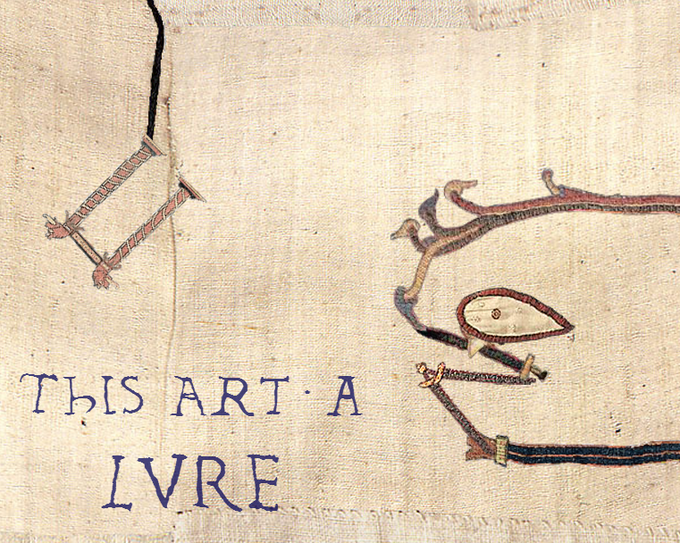 ThIS ART · A
LVRE